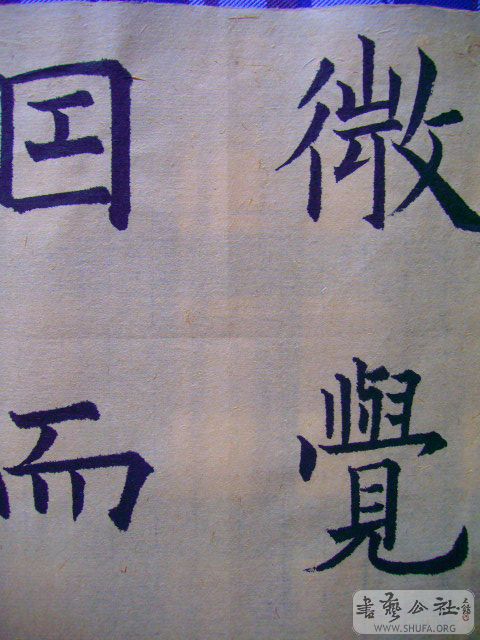 微覺
囙而
書藝公社
WWW.SHUFA.ORG